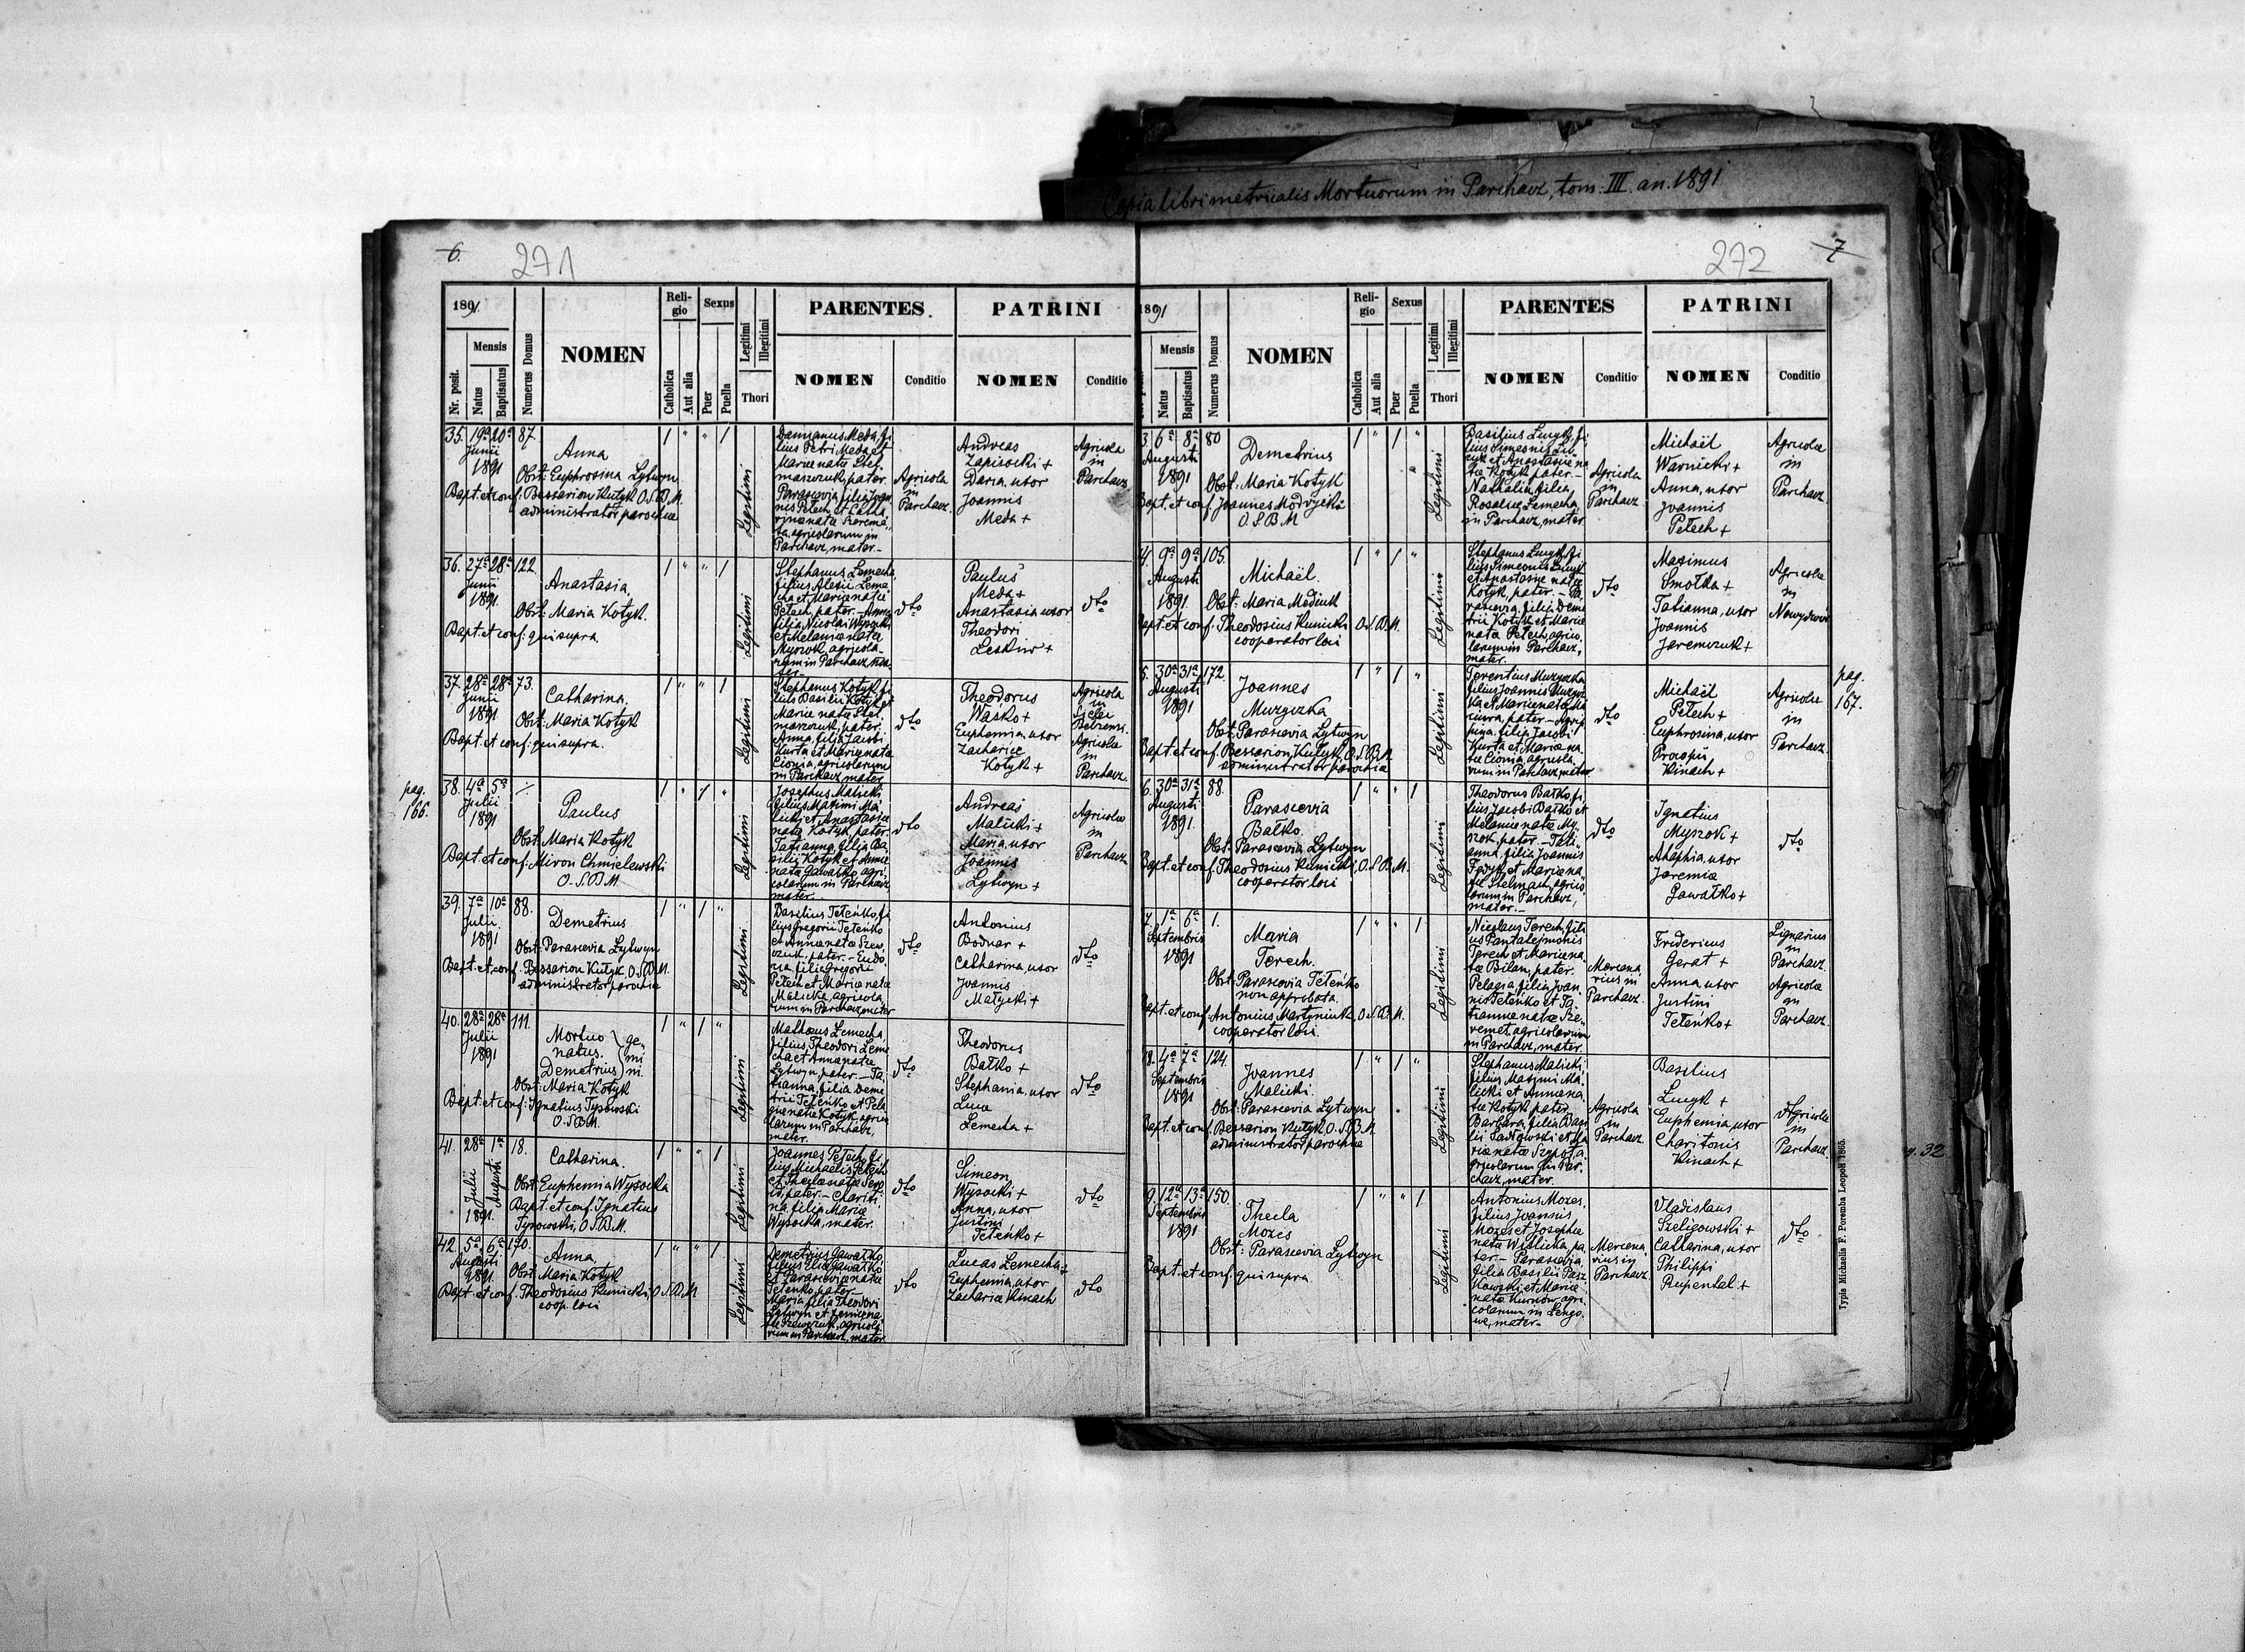 Copia libri metricalis Mortuorum in Parchacz, tom. III. an. 1891
6.
271
1891.
Nr. posit.
Mensis
Natus
Baptisatus
Numerus Domus
NOMEN
Religio
Catholica
Aut alia
Sexus
Puer
Puella
Legitimi
Illegitimi
Thori
PARENTES.
NOMEN
Conditio
PATRINI
NOMEN
Conditio
35. 19a 20a 87.
Junii
1891
Anna
Obst: Euphrosina Lytwyn
Bapt. et conf. Bessarion Kutyk O.S.B.M.
administrator parochiae
Legitimi
Damianus Meda, fi
lius Petri Meda et
Mariae natae Stel
maszczuk, pater.
Parascevia, filia Joan
nis Petech et Catha
rinae natae
agricolarum in
Parchacz, mater.-
Agricola
in
Parchacz.
Andreas
Zapisocki +
Daria, uxor
Joannis
Meda +
Agricola
in
Parchacz
36. 27a 28a 122
Junii
1891.
Anastasia,
Obst: Maria Kotyk.
Bapt. et conf: qui supra.
Legitimi
Stephanus Lemecha,
filius Alexii Leme
cha et Mariae natae
Petech, pater. - Anna
filia Nicolai Wysocki
et Melaniae natae
Myszok, agricola-
rum in Parchacz, ma
ter.-
dto
Paulus
Meda +
Anastasia uxor
Theodori
Leskiw +
dto
37. 28a 28a 73.
Junii
1891
Catharina.
Obst: Maria Kotyk
Bapt. et conf: qui supra.
Legitimi
Stephanus Kotyk, fi
lius Basilii Kotyk et
Mariae natae Stel
maszczuk, pater.
Anna, filia Jacobi
Kurta et Mariae natae
Cionia, agricolarum
in Parchacz, mater
dto
Theodorus
Wasko +
Euphemia, uxor
Zachariae
Kotyk +
Agricola
in
Agricolae
in
Parchacz
pag.
166.
38. 4a 5a
Julii
1891
Paulus
Obst: Maria Kotyk
Bapt. et conf: Miron Chmielewski
O.S.B.M.
Legitimi
Josephus Malicki
filius Maximi Ma
licki et Anastasiae
natae Kotyk, pater.
Tatianna, filia Ba
silii Kotyk et Annae
natae Gawałko agri
colarum in Parchacz
mater.
dto
Andreas
Malicki +
Maria, uxor
Joannis
Lytwyn +
Agricolae
in
Parchacz
39. 7a 10a 88.
Julii.
1891
Demetrius
Obst: Parascevia Lytwyn
Bapt. et conf. Bessarion Kutyk, O.S.B.M.
administrator parochiae
Legitimi
Basilius Teteńko, fi
lius Gregorii Teteńko
et Annae natae Szew
czuk, pater. - Eudo
xia, filia Gregorii
Petech et Mariae natae
Malicka, agricola
rum in Parchacz, mater
dto
Antonius
Bodnar +
Catharina, uxor
Joannis
Małycki +
dto
40. 28a 28a 111.
Julii
1891
Mortuo
natus.
Demetrius
ge-
mi
ni.
Obst: Maria Kotyk
Bapt. et conf: Ignatius Tysowski
O.S.B.M.
Legitimi
Mathaeus Lemecha,
filius Theodori Leme
cha et Anna natae
Lytwyn, pater. - Ta
tianna, filia Deme
trii Teteńko et Pela
giae natae Kotyk, agrico
larum in Parchacz,
mater.
dto
Theodorus
Bałko +
Stephania, uxor
Lucae
Lemecha +
dto
41. 28a 1a 18.
Julii
Augusti
1891.
Catharina.
Obst: Euphemia Wysocka
Bapt. et conf. Ignatius
Tysowski, O.S.B.M.
Legitimi
Joannes Petech, fi
lius Michaelis Petech
et Theclae natae
pater. - Chariti
na, filia Mariae
Wysocka, mater.
dto
Simeon
Wysocki +
Anna, uxor
Justini
Teteńko +
dto
42. 5a 6a 170.
Augusti
1891.
Anna
Obst: Maria Kotyk
Bapt. et conf. Theodosius Kunicki, O.S.B.M.
coop. loci
Legitimi
Demetrius Gawałko
filius Eliae Gawałko
et Parasceviae natae
Teteńko, pater.
Maria, filia Theodori
Lytwyn et Xeniae na
tae Szewczuk, agricola
rum in Parchacz, mater
dto
Lucas Lemecha +
Euphemia, uxor
Zachariae Kinach
dto
272
7
1891
Mensis
Natus
Baptisatus
Numerus Domus
NOMEN
Religio
Catholica
Aut alia
Sexus
Puer
Puella
Legitimi
Illegitimi
Thori
PARENTES
NOMEN
Conditio
PATRINI
NOMEN
Conditio
3. 6a 8a 80
Augusti
1891
Demetrius
Obst: Maria Kotyk
Bapt. et conf. Joannes Modrycki
O.S.B.M
Legitimi
Basilius Lucyk, fi
lius Simeonis Lu-
cyk et Anastasiae na
tae Kotyk, pater.-
Nathalia, filia
Rosaliae Lemecha,
in Parchacz, mater
Agricola
in
Parchacz
Michaël
Warnicki +
Anna, uxor
Joannis
Petech +
Agricolae
in
Parchacz
4. 9a 9a 105.
Augusti
1891.
Michaël.
Obst: Maria Mediuk
Bapt. et conf: Theodosius Kunicki O.S.B.M.
cooperator loci
Legitimi
Stephanus Lucyk, fi
lius Simeonis Lucyk
et Anastasiae natae
Kotyk, pater. - Pa
rascevia, filia Deme
trii Kotyk et Mariae
nata Petech, agrico
larum in Parchacz,
mater.
dto
Maximus
Smołka +
Tatianna, uxor
Joannis
Jaremczuk +
Agricolae
in
Nowydwór
5. 30a 31a 172.
Augusti
1891
Joannes
Murzyczka
Obst: Parascevia Lytwyn
Bapt. et conf. Bessarion Kutyk, O.S.B.M.
administrator parochiae
Legitimi
Terentius Murzyczka
filius Joannis Murzycz
ka et Mariae natae
pater. - Agrip
pina, filia Jacobi
Kurta et Mariae na
tae Cionia, agricola
rum in Parchacz mater
dto
Michaël
Petech +
Euphrosina, uxor
Procopii
Kinach +
Agricolae
in
Parchacz
pag.
167.
6. 30a 31a 88.
Augusti
1891.
Parascevia
Bałko.
Obst: Parascevia Lytwyn
Bapt. et conf. Theodosius Kunicki, O.S.B.M.
cooperator loci
Legitimi
Theodorus Bałko, fi
lius Jacobi Bałko et
Melaniae natae My-
szok, pater. - Tati-
anna, filia Joannis
Fedyk et Mariae na-
tae Stelmach, agrico
larum in Parchacz,
mater.-
dto
Ignatius
Myszok +
Ahaphia, uxor
Jeremiae
Gawałko +
dto
7. 1a 6a 1.
Septembris
1891
Maria
Terech.
Obst: Parascevia Teteńko
non approbata.
Bapt. et conf. Antonius Martyniuk, O.S.B.M.
cooperator loci.
Legitimi
Nicolaus Terech, fili
us Pantalejmonis
Terech et Mariae na
tae Bilan, pater.
Pelagia, filia Joan
nis Teteńko et Ta-
tiannae natae Sze-
remet, agricolarum
in Parchacz, mater.
Mercena
rius in
Parchacz.
Fredericus
Gerat +
Anna, uxor
Justini
Teteńko +
Lignarius
in
Parchacz.
Agricola
in
Parchacz.
8. 4a 7a 124.
Septembris
1891
Joannes
Malicki.
Obst: Parascevia Lytwyn
Bapt. et conf. Bessarion Kutyk O.S.B.M.
administrator parochiae
Legitimi
Stephanus Malicki
filius Maximi Ma-
licki et Annae na
tae Kotyk, pater.
Barbara, filia Basi
lii Sadłowski et Ma
riae natae
gricolarum in Par-
chacz, mater.
Agricola
in
Parchacz
Basilius
Lucyk +
Euphemia, uxor
Charitonis
Kinach +
Agricolae
in
Parchacz.
32
9. 12a 13a 150.
Septembris
1891
Thecla
Mozes
Obst: Parascevia Lytwyn
Bapt. et conf. qui supra
Legitimi
Antonius Mozes,
filius Joannis
Mozes et Josephae
natae Wiślicka, pa
ter.- Parascevia,
filia Basilii Pasz
kowski et Mariae
natae Kurnów, agri
colarum in
mater.-
Mercena
rius in
Parchacz
Vladislaus
Szeligowski +
Catharina, uxor
Philippi
Rupental. +
dto
Typis Michaelis F. Poremba Leopoli 1865.